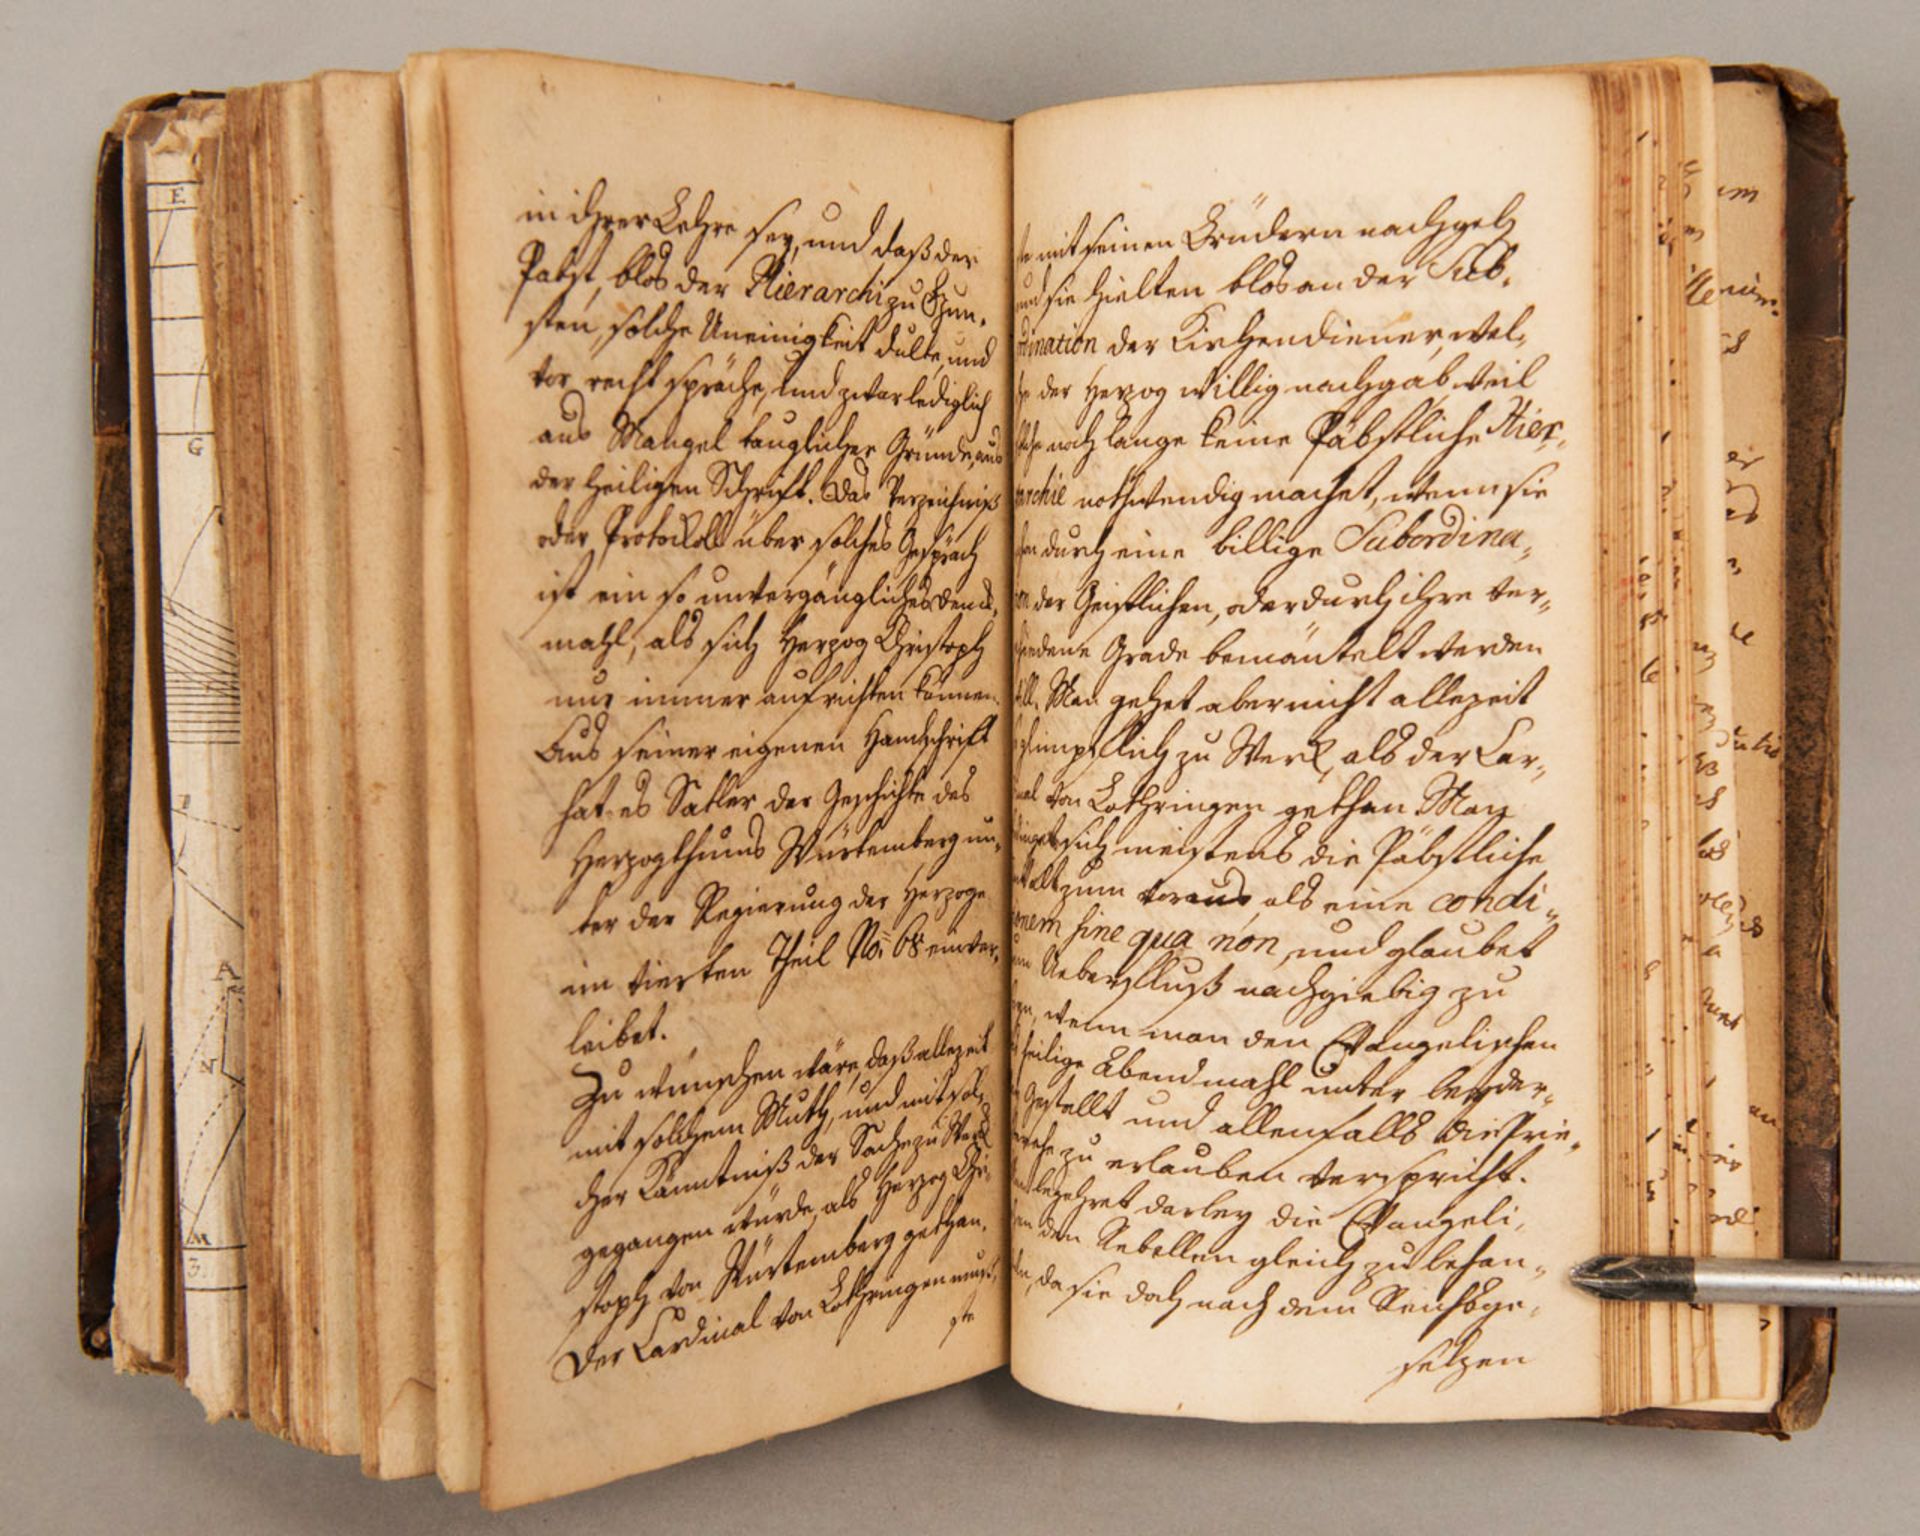 in ihrer Lehre sey, und daß der
Pabst, blos der Hierarchi zu Gun-
sten, solche Uneinigkeit dulte, und
vor recht spräche, und zwar lediglich
aus Mangel tauglicher Gründe, aus
der heiligen Schrift. Das Verzeichniß
oder Protockoll über solches Gespräch
ist ein so unvergängliches Denck-
mahl, als sich Herzog Christoph
nur immer aufrichten können.
Aus seiner eigenen Handschrift
hat es Satler der Geschichte des
Herzogthums Würtemberg un-
ter der Regierung der Herzoge
im vierten Theil No: 68 einver-
leibet.
Zu wünschen wäre, daß allezeit
mit solchem Muth, und mit sol-
cher Känntniß der Sache zu Werck
gegangen würde, als Herzog Chri-
stoph von Würtemberg gethan.
Der Cardinal von Lothringen muß-
ste
te mit seinen Brüdern nachgeb
und sie hielten blos an der Sub-
ordination der Kirchendiener, wel-
che der Herzog willig nachgab, weil
solche noch lange keine Päbstliche Hier-
archie nothwendig machet, wenn sie
schon durch eine billige Subordina-
tion der Geistlichen, oder durch ihre ver-
schiedene Grade bemäntelt werden
will. Man gehet aber nicht allezeit
so glimpflich zu Werck, als der Car-
dinal von Lothringen gethan. Man
dinget sich meistens die Päbstliche
Gewalt zum voraus, als eine condi-
tionem sine qua non, und glaubet
zum Ueberfluß nachgiebig zu
seyn, wenn man den Evangelischen
das heilige Abendmahl unter beyder-
ley Gestallt und allenfalls die Prie-
sterehe zu erlauben verspricht.
Man begehret darbey die Evangeli-
schen den Rebellen gleich zu behan-
deln, da sie doch nach dem Reichsge-
setzen
E
G
A
N
M
3